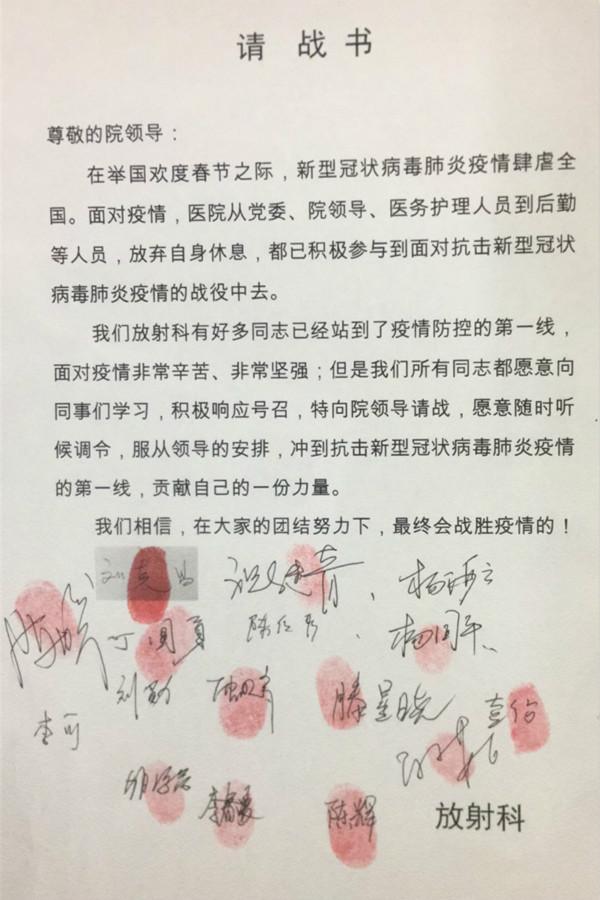 请战书
尊敬的院领导：
在举国欢度春节之际，新型冠状病毒肺炎疫情肆虐全
国。面对疫情，医院从党委、院领导、医务护理人员到后勤
等人员，放弃自身休息，都已积极参与到面对抗击新型冠状
病毒肺炎疫情的战役中去。
我们放射科有好多同志已经站到了疫情防控的第一线，
面对疫情非常辛苦、非常坚强；但是我们所有同志都愿意向
同事们学习，积极响应号召，特向院领导请战，愿意随时听
候调令，服从领导的安排，冲到抗击新型冠状病毒肺炎疫情
的第一线，贡献自己的一份力量。
我们相信，在大家的团结努力下，最终会战胜疫情的！
滕星晓
李可
陈辉
放射科